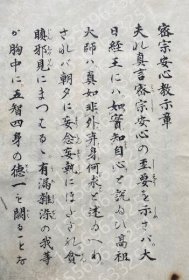 密宗安心教示章
夫れ真言密宗安心の至要を示さバ大
日経王にハ如實知自心と説ゐひ高祖
大師ハ真如非外弃身何求と述るへり
されバ朝夕に妄念妄執にほだされ貪
瞋邪見にまつはるゝ有漏雑染の我等
が胸中に五智四身の徳一を闕ることな